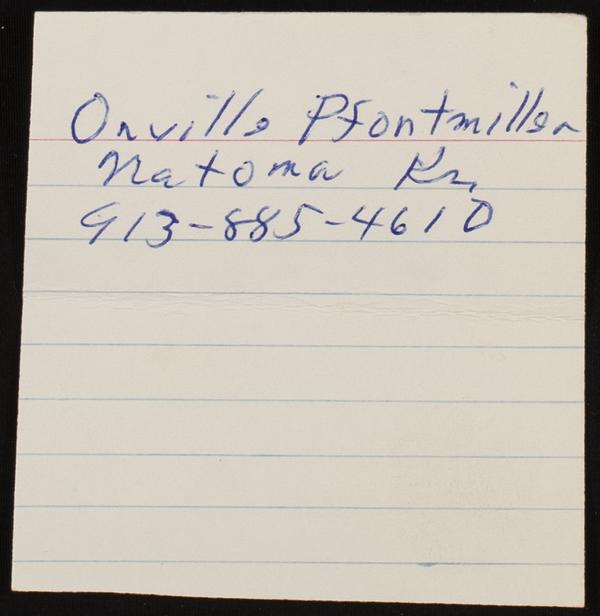 Orville Pfontmiller
Natoma Kn
913-885-4610